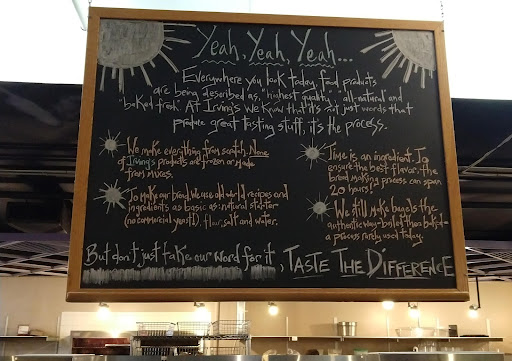 Yeah, Yeah, Yeah...
Everywhere you look today, food products
are being described as, "highest quality", "all-natural" and
"baked fresh." At Irving's we know that it's not just words that
produce great tasting stuff, it's the process.
We make everything from scratch. None
of Irving's products are frozen or made
from mixes.
To make our bread, we use old world recipes and
ingredients as basic as: natural starter
(no commercial yeast!), flour, salt and water.
Time is an ingredient. To
ensure the best flavor, the
bread making process can span
20 hours!
We still make bagels the
authentic way - boiled then baked -
a process rarely used today.
But don't just take our word for it, TASTE THE DIFFERENCE